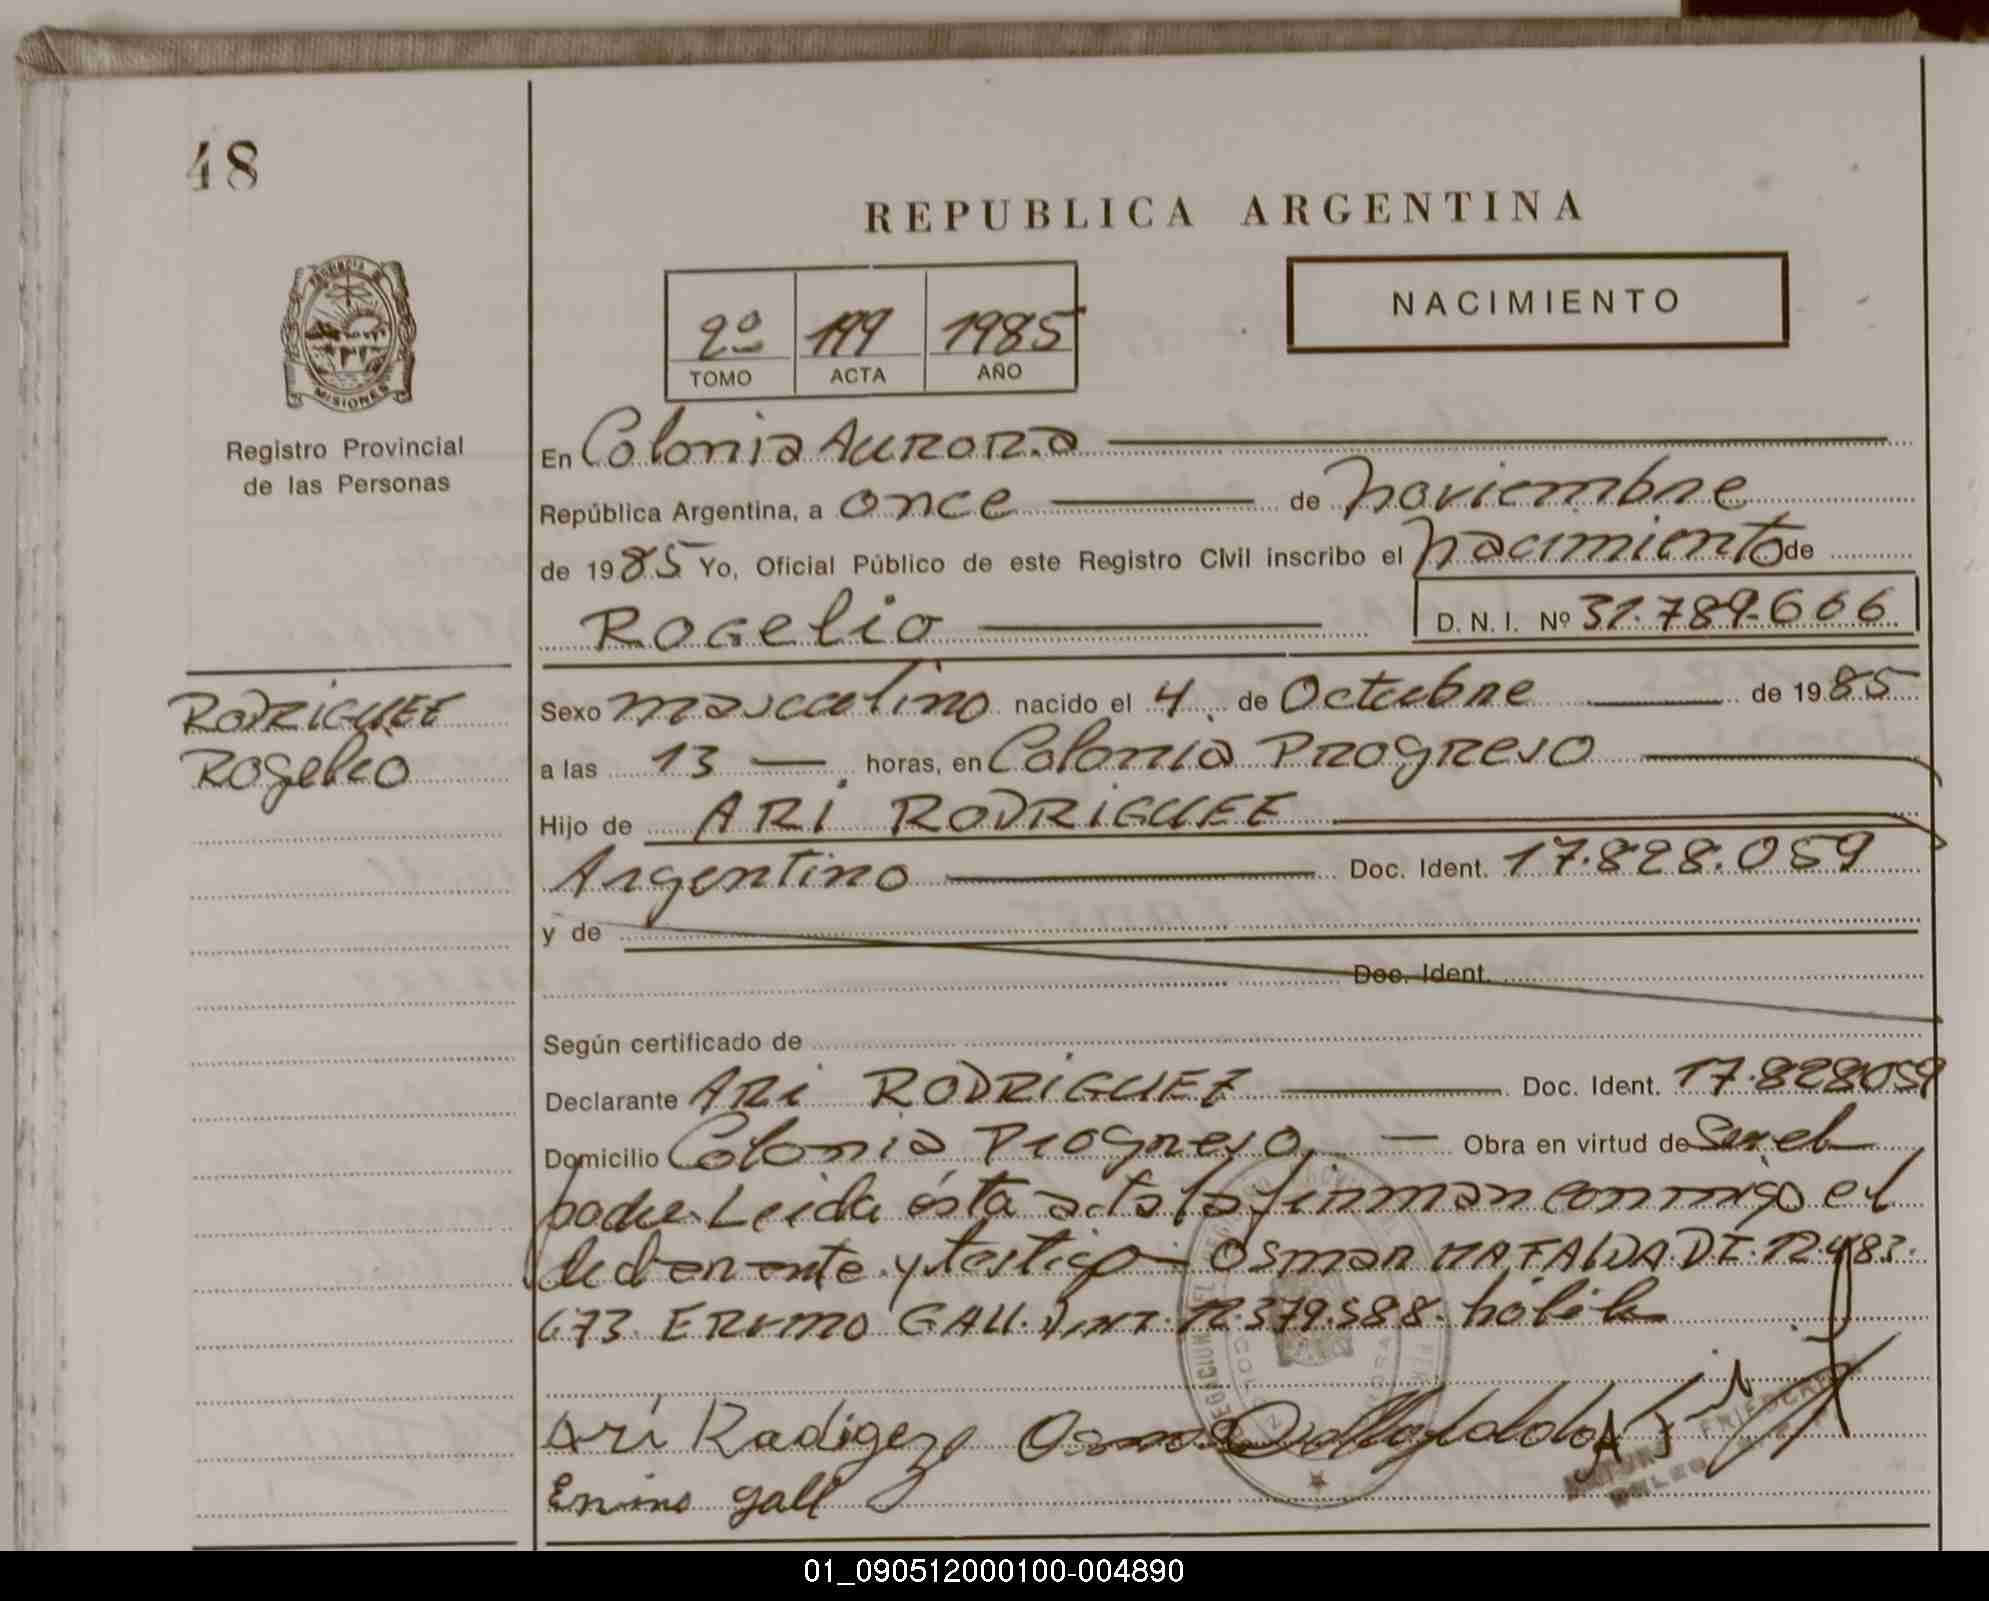 48
REPUBLICA ARGENTINA
NACIMIENTO
2º 199 1985
TOMO ACTA AÑO
PROVINCIA DE
MISIONES
Registro Provincial
de las Personas
En Colonia AURORA
República Argentina, a once de noviembre
de 1985 Yo, Oficial Público de este Registro Civil inscribo el nacimiento de
ROGelio D. N. I. Nº 31.789.666
RODRIGUEZ
Rogelio
Sexo masculino nacido el 4 de Octubre de 1985
a las 13 horas, en Colonia PROGReso
Hijo de ARI RODRIGUEZ
Argentino Doc. Ident. 17.828.059
y de
Doc. Ident.
Según certificado de
Declarante ARI RODRIGUEZ Doc. Ident. 17.828059
Domicilio Colonia Progreso Obra en virtud de Ser el
padre. Leida ésta acta la firman conmigo el
declarante y testigo OSMAR D.I. 12.483.
673. GALL. 12.379.588.
Ari Radigez
gall
01_090512000100-004890